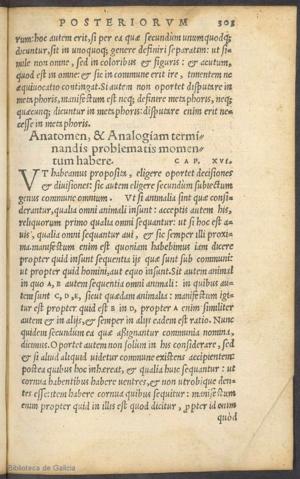 POSTERIORVM 303
rum: hoc autem erit, si per ea quæ secundùm unumquodq;
dicuntur, sit in unoquoq; genere definiri separatim: ut si-
mile non omne, sed in coloribus & figuris: & acutum,
quod est in omne: & sic in commune erit ire, timentem ne
æquiuocatio contingat. Si autem non oportet disputare in
metaphoris, manifestum est neq; definire metaphoris, neq;
quæcunq; dicuntur in metaphoris: disputare enim erit ne-
cesse in metaphoris.
Anatomen, & Analogiam termi-
nandis problematis momen-
tum habere. CAP. XVI.
VT habeamus proposita, eligere oportet decisiones
& diuisiones: sic autem eligere secundùm subiectum
genus commune omnium. Vt si animalia sint quæ consi-
derantur, qualia omni animali insunt: acceptis autem his,
reliquorum primo qualia omni sequantur: ut si hoc est a-
uis, qualia omni sequantur aui, & sic semper illi proxi-
ma. manifestum enim est quoniam habebimus iam dicere
propter quid insunt sequentia ijs quæ sunt sub communi:
ut propter quid homini, aut equo insunt. Sit autem animal
in quo A, B autem sequentia omni animali: in quibus au-
tem sunt C, D, E, sicut quædam animalia: manifestum igi-
tur est propter quid est B in D, propter A enim similiter
autem & in alijs, & semper in alijs eadem est ratio. Nunc
quidem secundùm ea quæ assignantur communia nomina,
dicimus. Oportet autem non solùm in his considerare, sed
& si aliud aliquid uidetur commune existens accipientem:
postea quibus hoc inhæreat, & qualia huic sequantur: ut
cornua habentibus habere uentres, & non utrobique den-
tes
habere cornua quibus sequitur: manifestum
enim propter quid in illis est quod dicitur, propter id enim
quòd
Biblioteca de Galicia